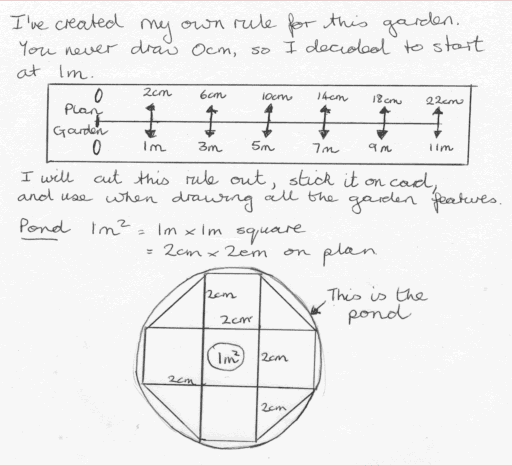 I've created my own rule for this garden.
You never draw 0cm, so I decided to start
at 1m.
0 2cm 6cm 10cm 14cm 18cm 22cm
Plan
Garden
0 1m 3m 5m 7m 9m 11m
I will cut this rule out, stick it on card,
and use when drawing all the garden features.
Pond 1m² = 1m x 1m square
= 2cm x 2cm on plan
This is the
pond
2cm
2cm
1m²
2cm
2cm
2cm